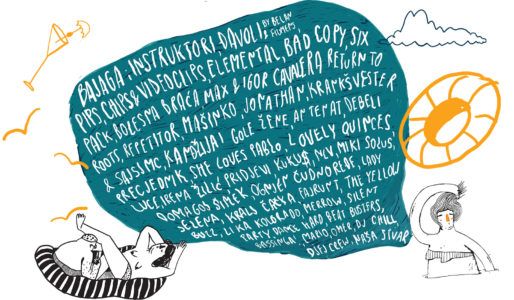 BAJAGA & INSTRUKTORI, DAVOLI BY BELAN FILMEPS
PIPS CHIPS & VIDEOCLIPS, ELEMENTAL, BAD COPY, SIX
PACK, BOLESNA BRAĆA, MAX & IGOR CAVALERA RETURN TO
ROOTS, REPETITOR, MAŠINKO, JONATHAN, KRANKŠVESTER
& SAJSI MC, KANDŽIJA I GOLE ŽENE, AP TEP AT DEBELI
PRECJEDNIK, SHE LOVES PABLO, LOVELY QUINCES,
LUCE, IRENA ŽILIĆ, PRIDJEVI, KUKU$, NLV, MIKI SOLUS,
DOMAGOJ ŠIMEK, OGNJEN ČUDNOREĐE, LADY
JELENA, KRALJ ČAČKA, FAJRUNT, THE YELLOW
KOLOADO, MERROW, SILENT
PARTY, HARD BEAT BUSTERS,
SASSHIMLA, MARIO OMER, DJ CHILL,
DJEJ CREW, NAŠA STVAR